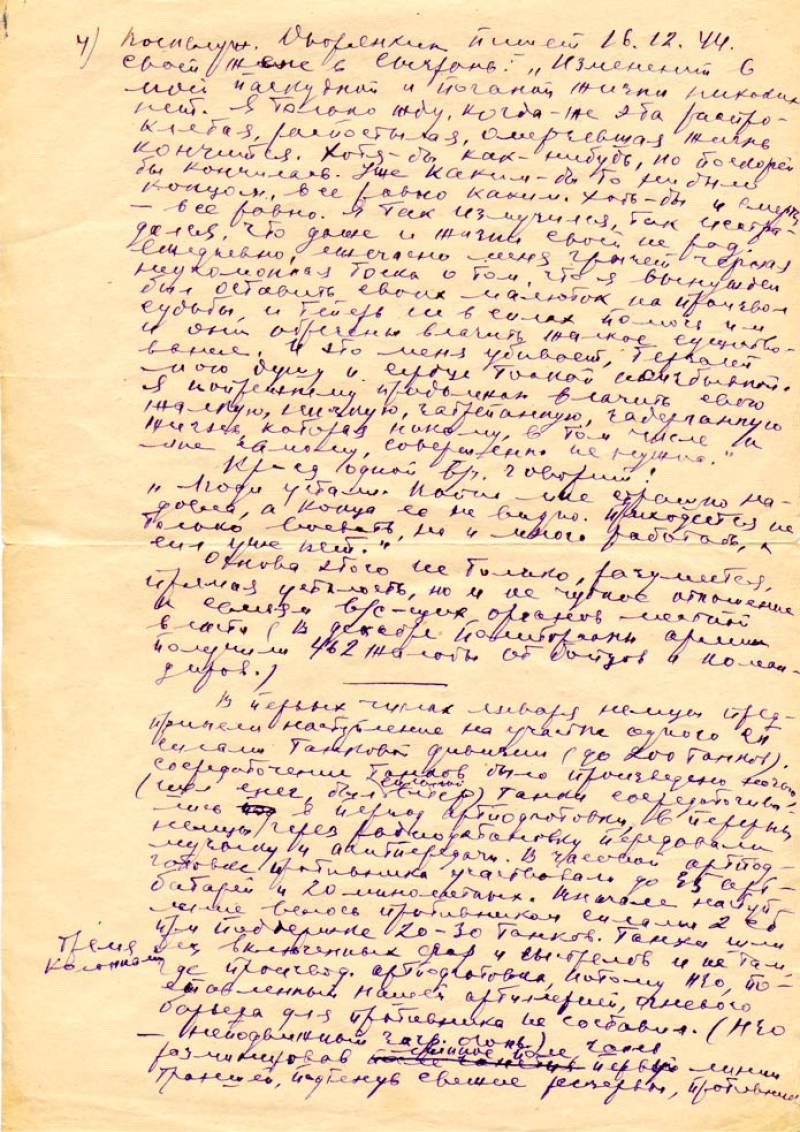 4) Военнослуж. Дворянкин пишет 16.12.44.
своей жене в Сызрань: „Изменений в
моей паскудной и поганой жизни никаких
нет. Я только жду, когда-же эта распро-
клятая, распостылая, омерзевшая жизнь
кончится. Хотя-бы как-нибудь, но поскорей
бы кончилась. Уже каким-бы то ни было
концом, все равно каким. Хоть-бы и смерть
— все равно. Я так измучился, так исстра-
дался, что даже и жизни своей не рад.
Ежедневно, ежечасно меня грызет
неугомонная тоска о том, что я вынужден
был оставить своих малюток на произвол
судьбы, и теперь не в силах помочь им
и они обречены влачить жалкое существо-
вание. И это меня убивает, терзает
мою душу и сердце тоской
Я попрежнему продолжаю влачить свою
жалкую, нищую, затрепанную, задерганную
жизнь, которая никому, в том числе и
мне самому, совершенно не нужна."
Кр-ец одной бр. говорит:
„Люди устали. Война мне страшно на-
доела, а конца ее не видно. Приходится не
только воевать, но и много работать, а
сил уже нет."
Основа этого не только, разумеется,
прямая усталость, но и не чуткое отношение
к семьям в/с-щих органов местной
власти (В декабре политорганы армии
получили 462 жалобы от бойцов и коман-
диров.)
В первых числах января немцы пред-
приняли наступление на участке одного СП
силами танковой дивизии (до 200 танков).
Сосредоточение танков было произведено ночью,
(шел снег, был сильный ветер) Танки сосредоточива-
лись в период артподготовки, в перерыв
немцы через радиоустановку передавали
музыку и агитпередачи. В часовой артпод-
готовке противника участвовали до 25 арт-
батарей и 20 минометных. Вначале наступ-
ление велось противником силами 2
при поддержке 20-30 танков. Танки шли
тремя колоннами
без включенных фар и выстрелов и не там,
где производ. артподготовка, потому НЗО, по-
ставленный нашей артиллерией, огневого
барьера для противника не составил. (НЗО
— неподвижный загр. огонь)
Разминировав минное поле первой линии
траншей, подтянув свежие резервы, противник